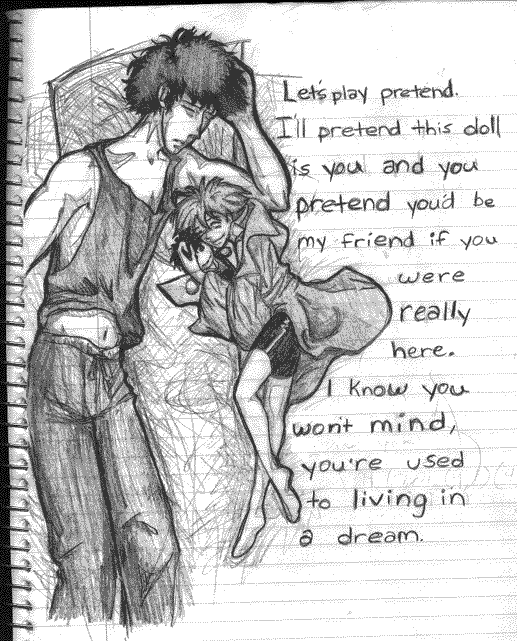 Let's play pretend.
I'll pretend this doll
is you and you
pretend you'd be
my friend if you
were
really
here.
I know you
won't mind,
you're used
to living in
a dream.